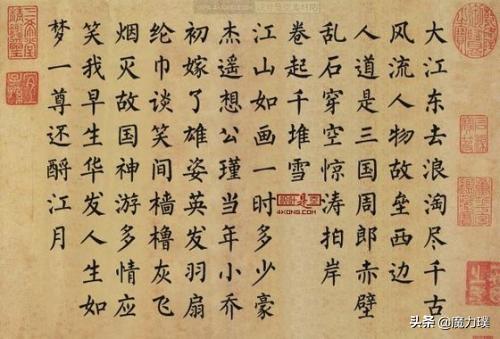 大江东去浪淘尽千古
风流人物故垒西边
人道是三国周郎赤壁
乱石穿空惊涛拍岸
卷起千堆雪
江山如画一时多少豪
杰遥想公瑾当年小乔
初嫁了雄姿英发羽扇
纶巾谈笑间樯橹灰飞
烟灭故国神游多情应
笑我早生华发人生如
梦一尊还酹江月
4KONG.COM
头条 @魔力璞